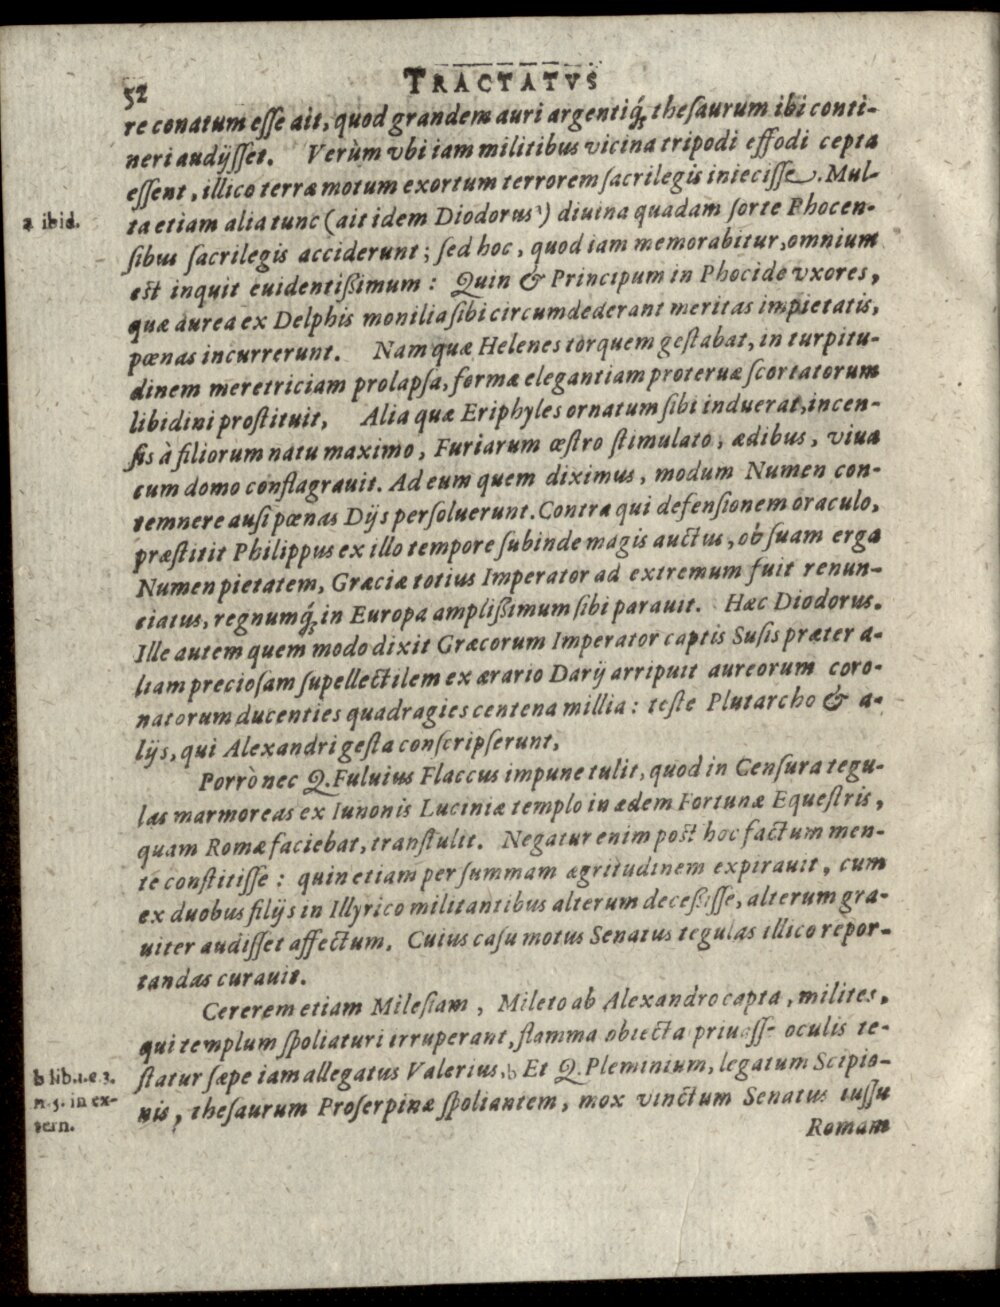 52
TRACTATVS
re conatum esse ait, quod grandem auri argentiq́; thesaurum ibi conti-
neri audijsset. Verùm vbi iam militibus vicina tripodi effodi cepta
essent, illico terræ motum exortum terrorem sacrilegis iniecisse. Mul-
ta etiam alia tunc (ait idem Diodorus a) diuina quadam sorte Phocen-
a ibid.
sibus sacrilegis acciderunt; sed hoc, quod iam memorabitur, omnium
est inquit euidentißimum: Quin & Principum in Phocide vxores,
quæ aurea ex Delphis monilia sibi circumdederant meritas impietatis,
pœnas incurrerunt. Nam quæ Helenes torquem gestabat, in turpitu-
dinem meretriciam prolapsa, formæ elegantiam proteruæ scortatorum
libidini prostituit, Alia quæ Eriphyles ornatum sibi induerat, incen-
sis à filiorum natu maximo, Furiarum œstro stimulato, ædibus, viua
cum domo conflagrauit. Ad eum quem diximus, modum Numen con-
temnere ausi pœnas Dijs persoluerunt. Contra qui defensionem oraculo,
præstitit Philippus ex illo tempore subinde magis auctus, ob suam erga
Numen pietatem, Græciæ totius Imperator ad extremum fuit renun-
ciatus, regnumq́; in Europa amplißimum sibi parauit. Hæc Diodorus.
Ille autem quem modo dixit Græcorum Imperator captis Susis præter a-
liam preciosam supellectilem ex ærario Darij arripuit aureorum coro-
natorum ducenties quadragies centena millia: teste Plutarcho & a-
lijs, qui Alexandri gesta conscripserunt,
Porrò nec Q. Fuluius Flaccus impune tulit, quod in Censura tegu-
las marmoreas ex Iunonis Luciniæ templo in ædem Fortunæ Equestris,
quam Romæ faciebat, transtulit. Negatur enim post hoc factum men-
te constitisse: quin etiam per summam ægritudinem expirauit, cum
ex duobus filijs in Illyrico militantibus alterum deceßisse, alterum gra-
uiter audisset affectum. Cuius casu motus Senatus tegulas illico repor-
tandas curauit.
Cererem etiam Milesiam, Mileto ab Alexandro capta, milites,
qui templum spoliaturi irruperant, flamma obiecta priuasse oculis te-
statur sæpe iam allegatus Valerius, b Et Q. Pleminium, legatum Scipio-
b lib.1.c 3.
n.5. in ex-
tern.
nis, thesaurum Proserpinæ spoliantem, mox vinctum Senatus iussu
Romam